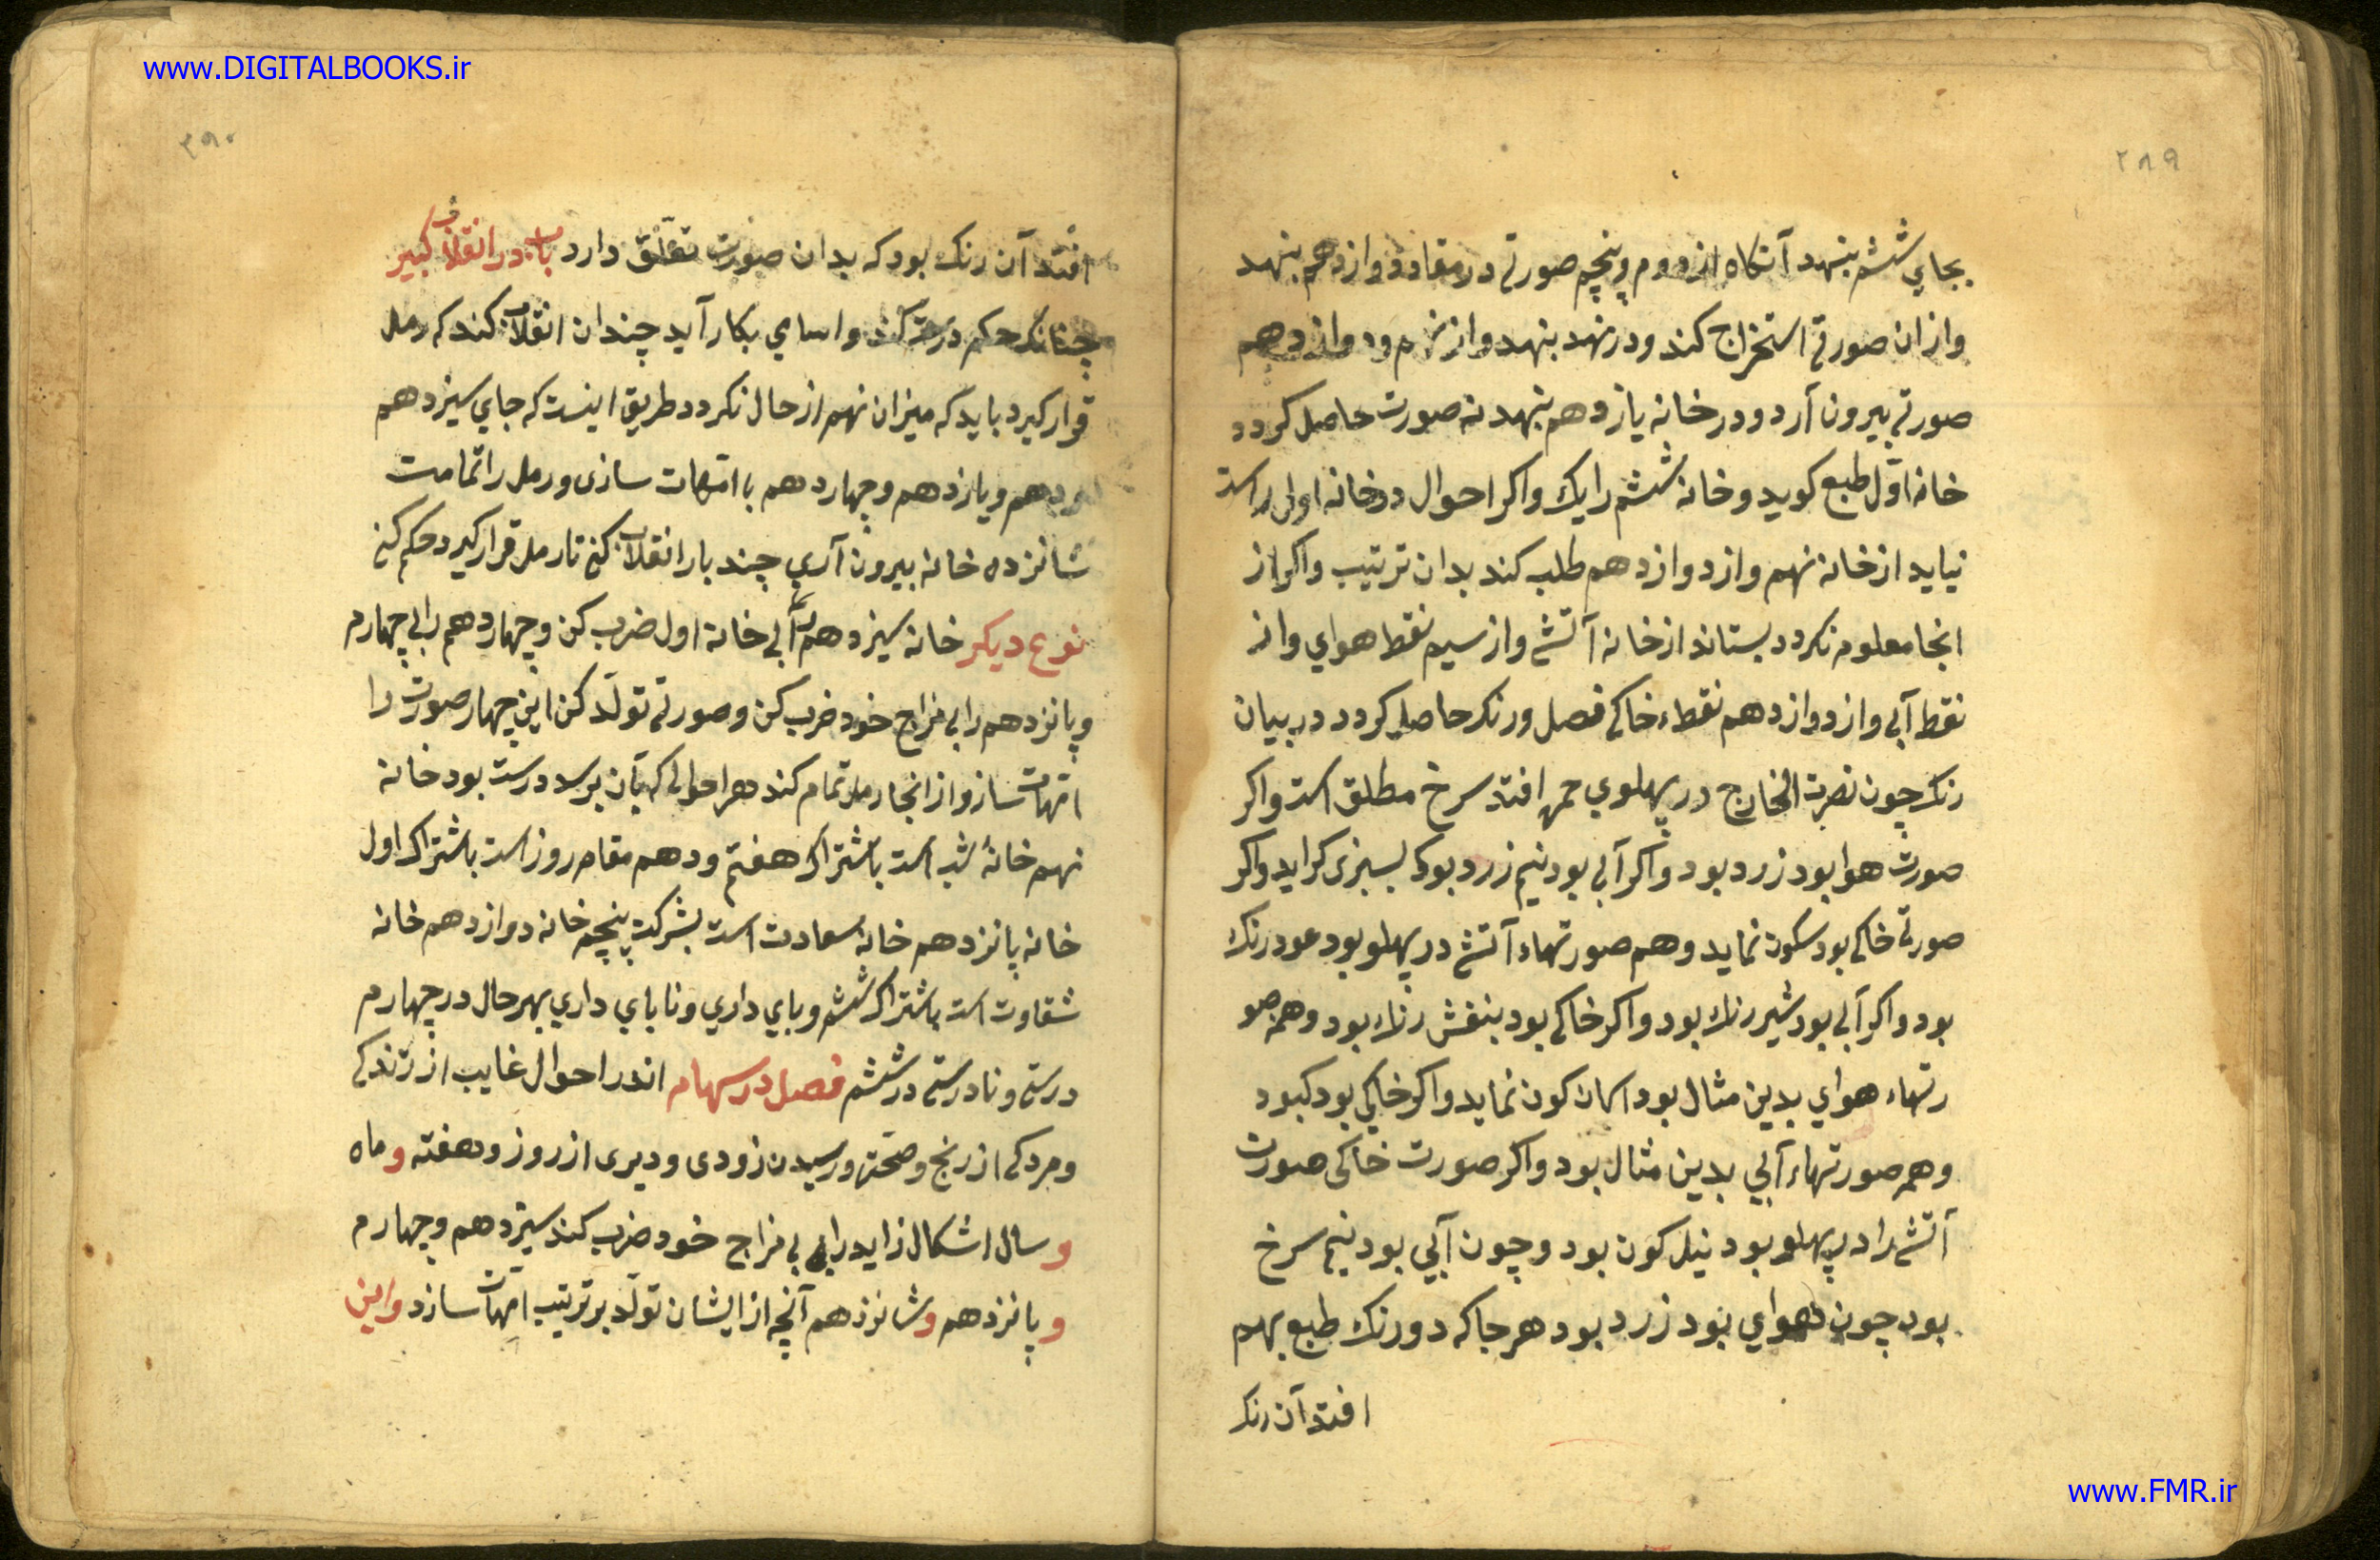 www.DIGITALBOOKS.ir
۲۸۹
بجاي ششم بنهد آنکاه از دوم و پنجم صورتی در مقام دوازدهم بنهد
و از ان صورتی استخراج کند و در نهد بنهد و از نهم و دوازدهم
صورتی بیرون آرد و در خانه یازدهم بنهد نه صورت حاصل کردد
خانه اوّل طبع کوید و خانه ششم را یک و اکر احوال در خانه اولی راست
نیاید از خانه نهم و از دوازدهم طلب کند بدان ترتیب و اکر از
انجا معلوم نکردد بستاند از خانه آتشی و از سیم نقط هوای و از
نقط آبی و از دوازدهم نقطه خاکی فصل و رنک حاصل کردد در بیان
رنک چون نصرت الخارج در پهلوي حمره افتد سرخ مطلق است و اکر
صورت هوا بود زرد بود و اکر آبی بود نیم زرد بود که بسبزی کراید و اکر
صورتی خاکی بود سکون نماید و هم صورتهاء آتشی در پهلو بود عود رنک
بود و اکر آبی بود شیر رنک بود و اکر خاکی بود بنفش رنک بود و همه صو
رتهاء هواي بدین مثال بود اسمان کون نماید و اکر خاکي بود کبود
و همه صورتهاء آبي بدین مثال بود و اکر صورت خاکی صورت
آتشی را در پهلو بود نیل کون بود و چون آبي بود نیم سرخ
بود چون هواي بود زرد بود هر جا که دو رنک طبع بهم
افتد آن رنک
۲۹۰
افتد آن رنک بود که بدان صورت تعلّق دارد باب در انقلاب کبیر
چنانکه حکم درست کند و اسامي بکار آید چندان انقلاب کند که رمل
قرار کیرد باید که میزان نهم از حال نکردد طریق اینست که جاي سیزدهم
و یازدهم و چهاردهم با امّهات سازی و رمل را تمامت
شانزده خانه بیرون آري چند بار انقلاب کنی تا رمل قرار کیرد حکم کنی
نوع دیکر خانه سیزدهم را بی خانه اول ضرب کن و چهاردهم را بی چهارم
و پانزدهم را بی مزاج خود ضرب کن و صورتی تولّد کن این چهار صورت را
امّهات ساز و از انجا رمل تمام کند هر احوالی که بآن برسد درست بود خانه
نهم خانهٔ شب است باشتراک هفتم و دهم مقام روز است باشتراک اول
خانه پانزدهم خانه سعادت است بشرکت پنجم خانه دوازدهم خانه
شقاوت است باشتراک ششم و باي داري و نا باي داري بهر حال در چهارم
درستی و نادرستی در ششم فصل در سهام اندر احوال غایب از زندکی
و مردکی از رنج و صحّت و رسیدن زودی و دیری از روز و هفته و ماه
و سال اشکال زاید را بی مزاج خود ضرب کند سیزدهم و چهارم
و پانزدهم و شانزدهم آنچه از ایشان تولّد بر ترتیب امّهات سازد و این
www.FMR.ir